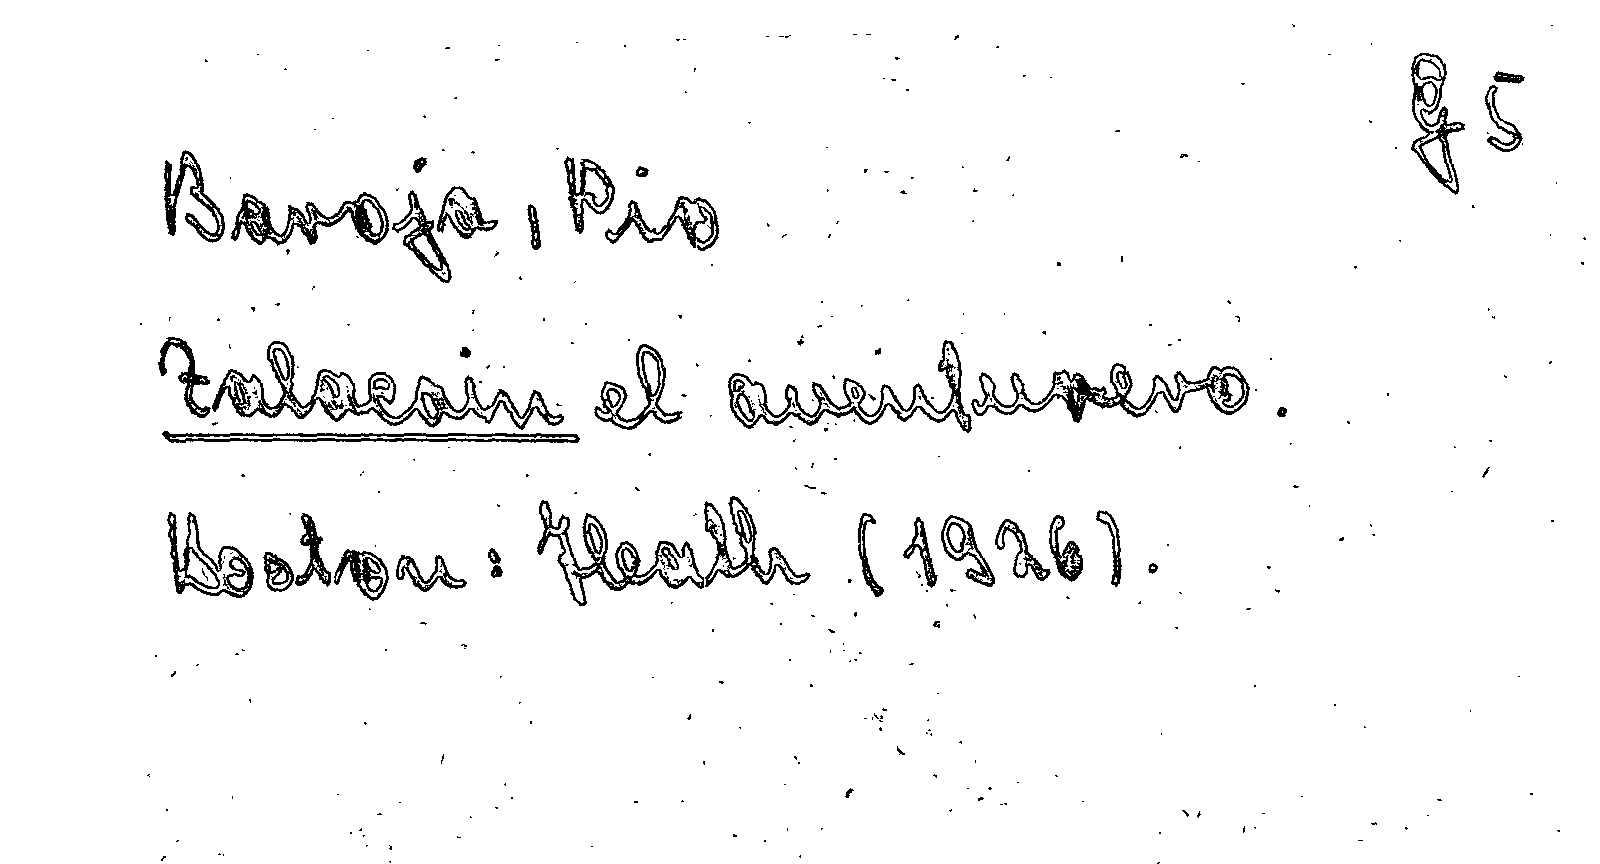 85
Baroja, Pio
Zalacain el aventurero.
Boston: Heath (1926).